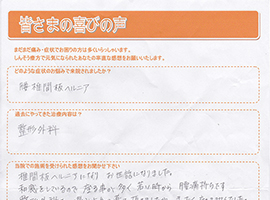 皆さまの喜びの声
まだまだ痛み・症状でお困りの方は多くいらっしゃいます。
しんそう療方で元気になられたあなたの率直な感想をお願いいたします。
どのような症状のお悩みで来院されましたか?
腰椎間板ヘルニア
過去にやってきた治療内容は?
整形外科
当院での施術を受けられた感想をお聞かせ下さい
椎間板ヘルニアになり お世話になりました。
和裁をしているので 座る事が多く 若い時から 腰痛持ちです